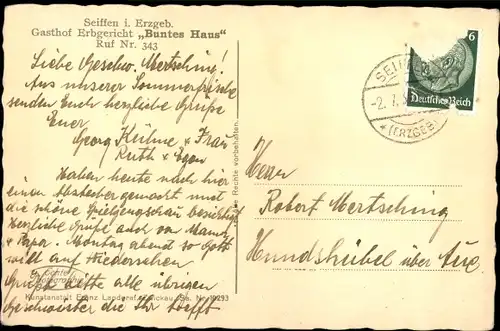 Seiffen i. Erzgeb.
Gasthof Erbgericht „Buntes Haus"
Ruf Nr. 343
Liebe Geschw. Mertsching!
Aus unserer Sommerfrische
senden Euch herzliche Grüße
Euer
Georg Kühne & Frau
Ruth & Egon
Haben heute nach hier
einen Abstecher gemacht und
die schöne Spielzeugschau besichtigt
Herzliche Grüße auch von Mama
& Papa. Montag abend so Gott
will auf Wiedersehen
Grüßt bitte alle übrigen
Geschwister die Ihr trefft
Echte
Photographie
Kunstanstalt Franz Landgraf, Zwickau Sa. Nr. 10293
Alle Rechte vorbehalten.
6
Deutsches Reich
SEIFFEN
-2.7.3
(ERZGEB)
Herrn
Robert Mertsching
Hundshübel über Aue